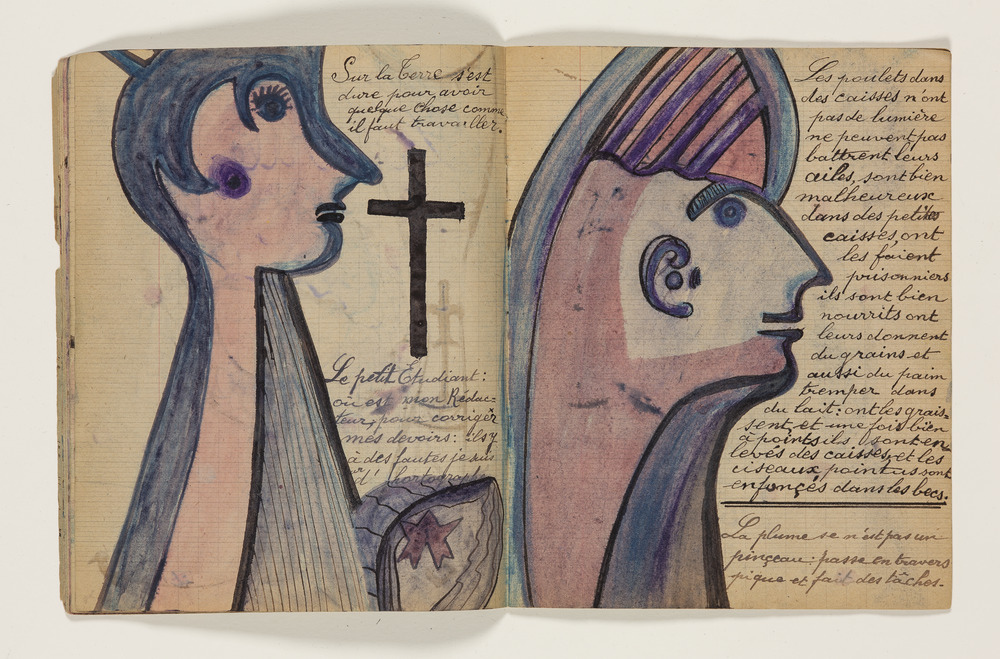 Sur la Terre s'est
dure pour avoir
quelque chose comme
il faut travailler.
Le petit Etudiant:
où est mon Rédac-
teur, pour corrigér
mes devoirs: ils y
à des fautes je suis
d'
Les poulets dans
des caisses n'ont
pas de lumière
ne peuvent pas
battrent leurs
ailes, sont bien
malheureux
dans des petites
caisses, ont
les faient
prisonniers
ils sont bien
nourrits ont
leurs donnent
du grains et
aussi du pain
tremper dans
du lait: ont les grais-
sent, et une fois bien
à points ils sont en-
levés des caisses, et les
ciseaux pointus sont
enfonçés dans les becs.
La plume se n'est pas un
pinçeau: passe en travers
pique et fait des tâches.